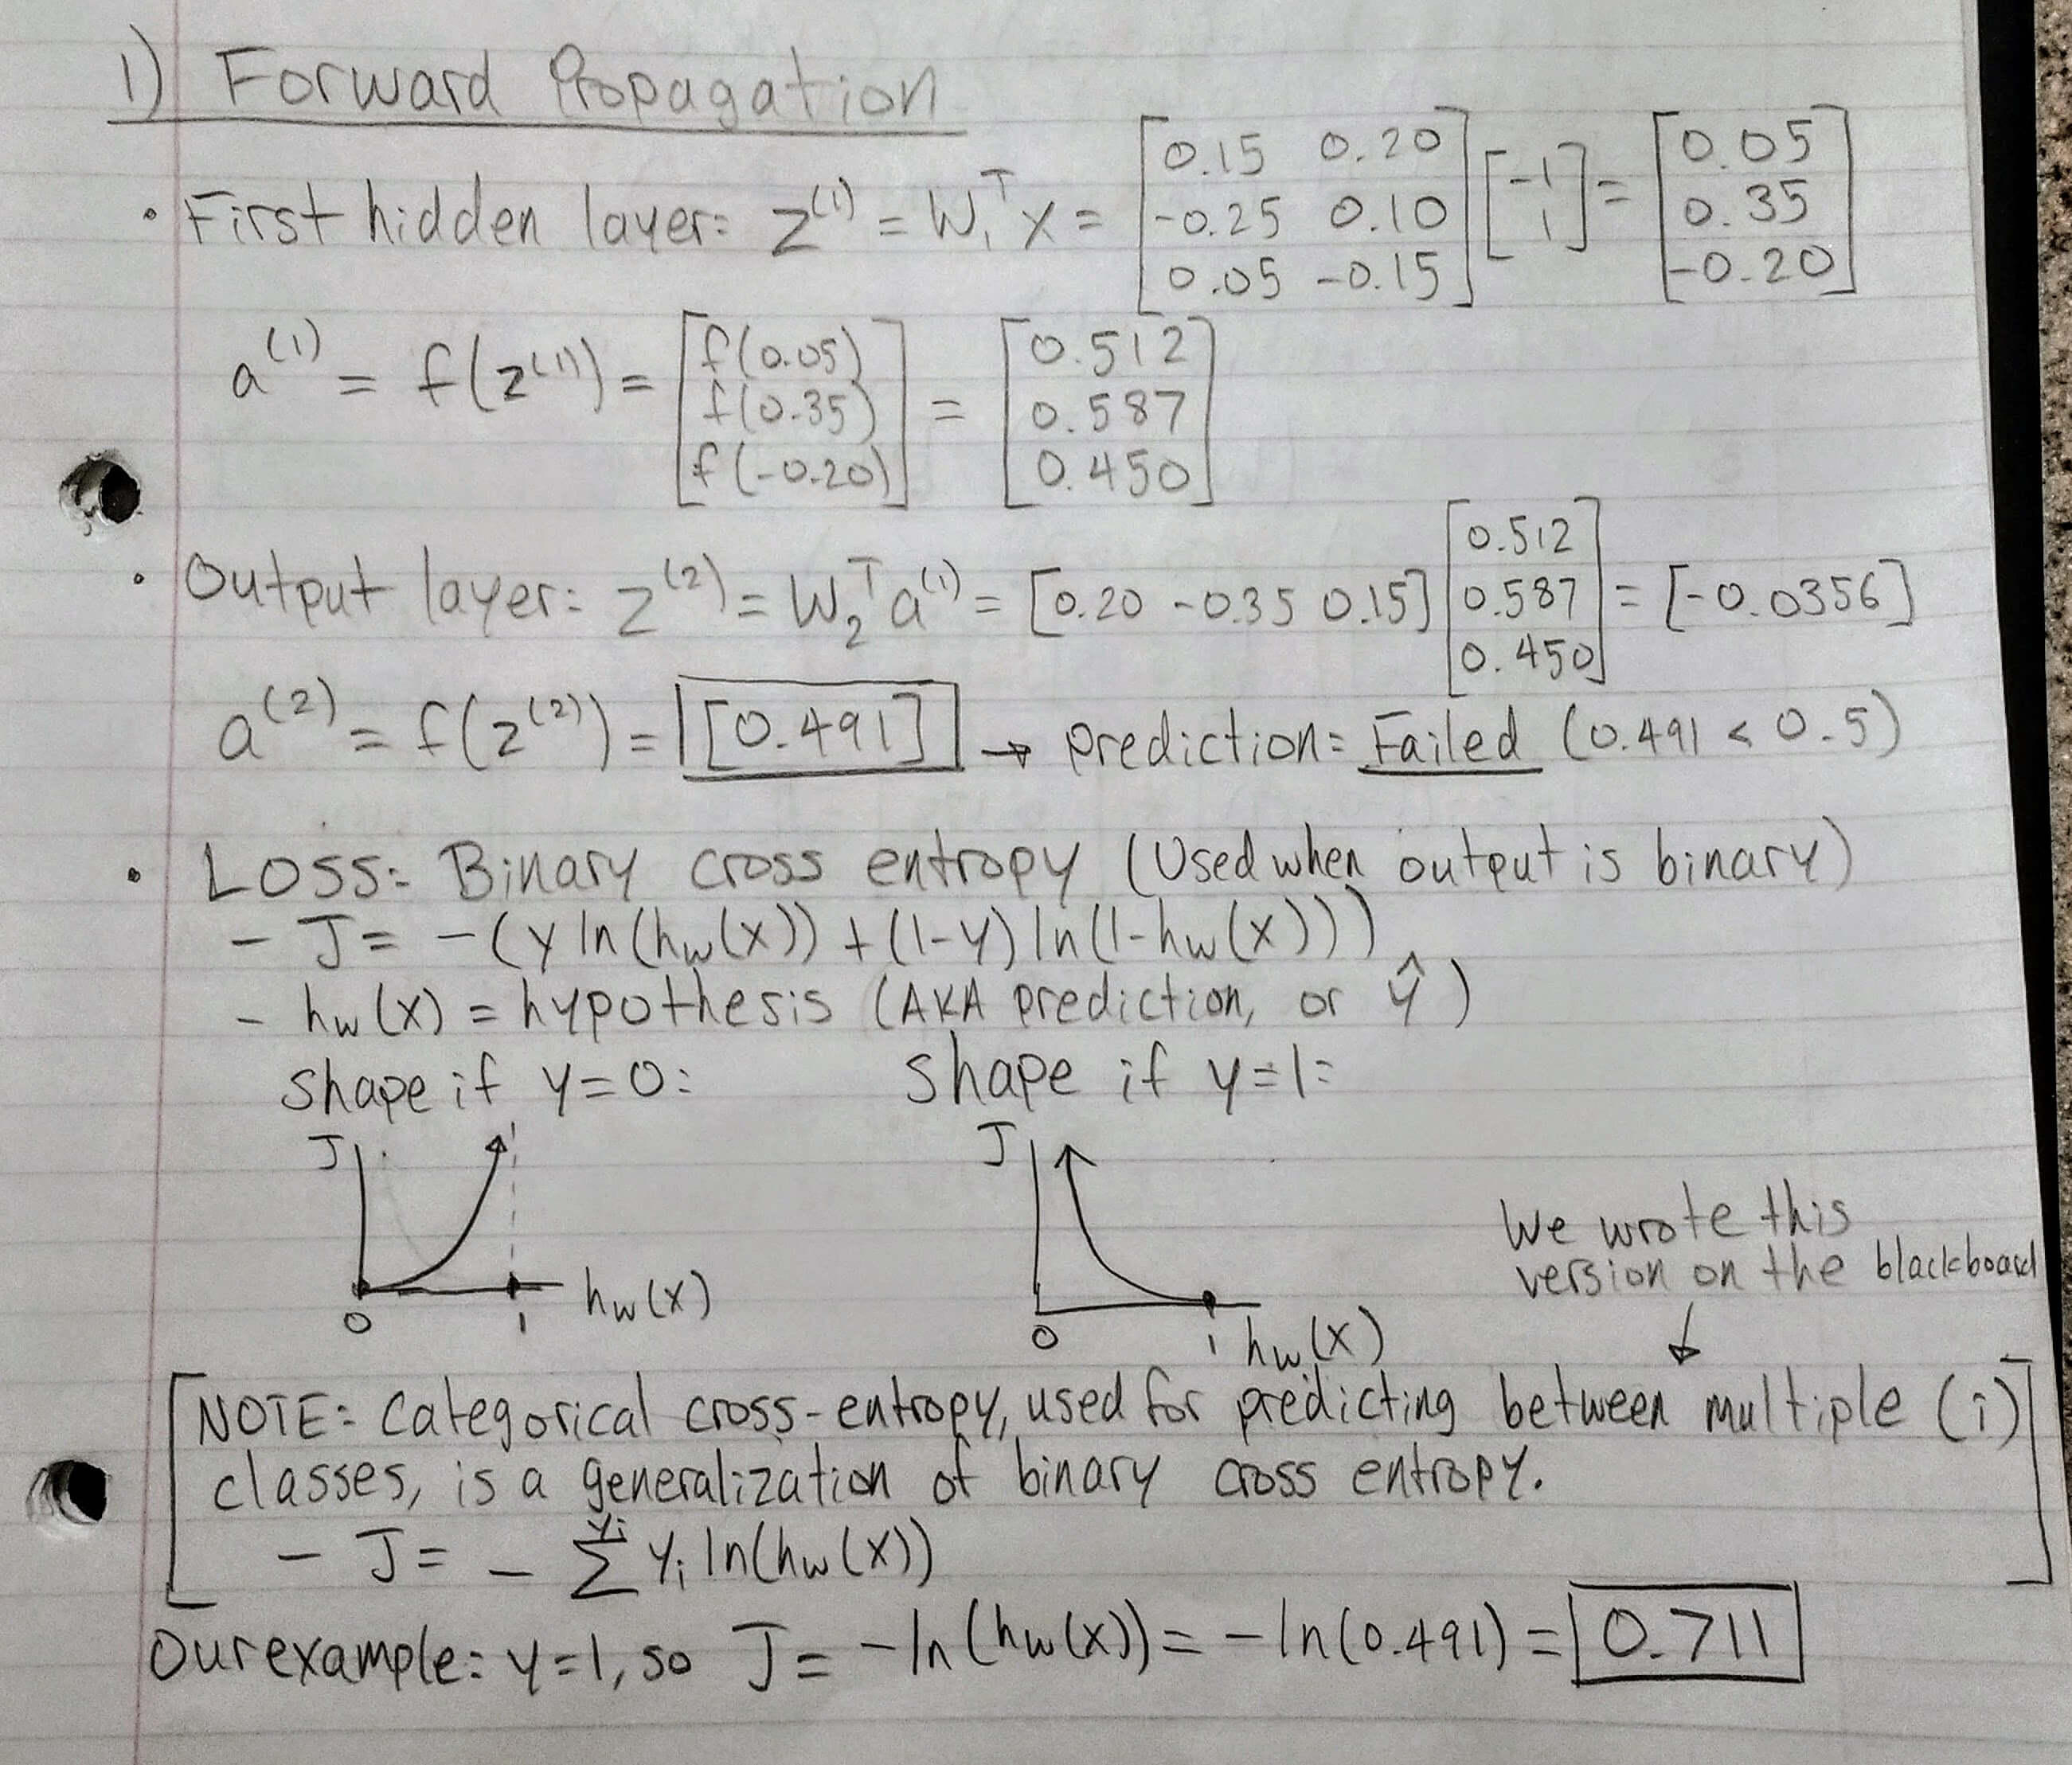 1) Forward Propagation
• First hidden layer: z⁽¹⁾ = W₁ᵀx = [0.15 0.20; -0.25 0.10; 0.05 -0.15] [-1; 1] = [0.05; 0.35; -0.20]
a⁽¹⁾ = f(z⁽¹⁾) = [f(0.05); f(0.35); f(-0.20)] = [0.512; 0.587; 0.450]
• Output layer: z⁽²⁾ = W₂ᵀa⁽¹⁾ = [0.20 -0.35 0.15] [0.512; 0.587; 0.450] = [-0.0356]
a⁽²⁾ = f(z⁽²⁾) = [0.491] → prediction: Failed (0.491 < 0.5)
• Loss: Binary cross entropy (Used when output is binary)
- J = -(y ln(hw(x)) + (1-y) ln(1-hw(x)))
- hw(x) = hypothesis (AKA prediction, or ŷ)
Shape if y=0: Shape if y=1:
J 0 1 hw(x)
J 0 1 hw(x)
We wrote this
version on the blackboard
↓
[NOTE: Categorical cross-entropy, used for predicting between multiple (i)
classes, is a generalization of binary cross entropy.
- J = - Σ^yi yi ln(hw(x))]
Our example: y=1, so J = -ln(hw(x)) = -ln(0.491) = 0.711